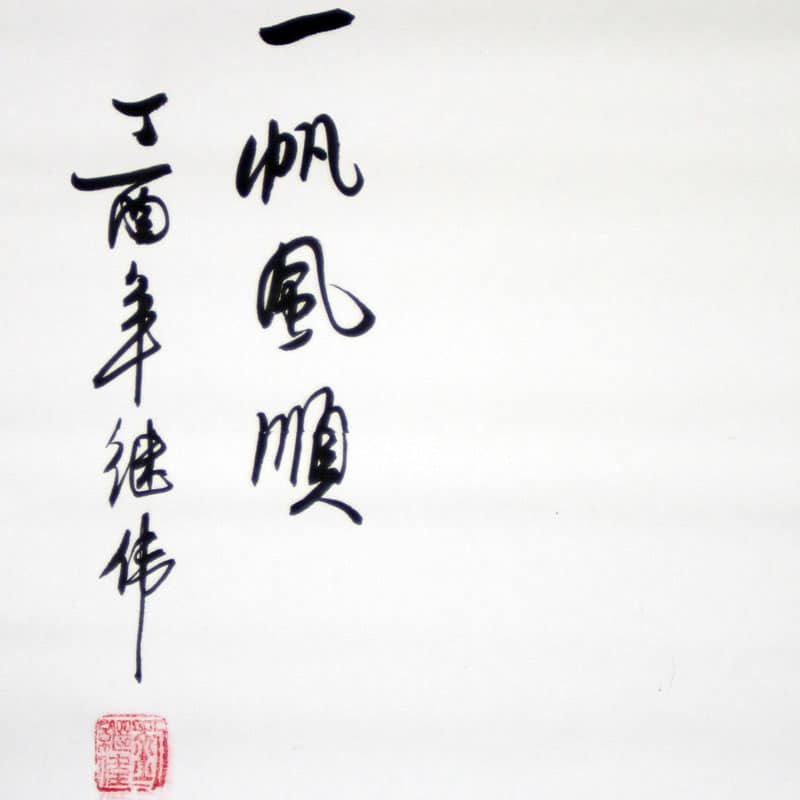 一帆風順
丁酉年继伟